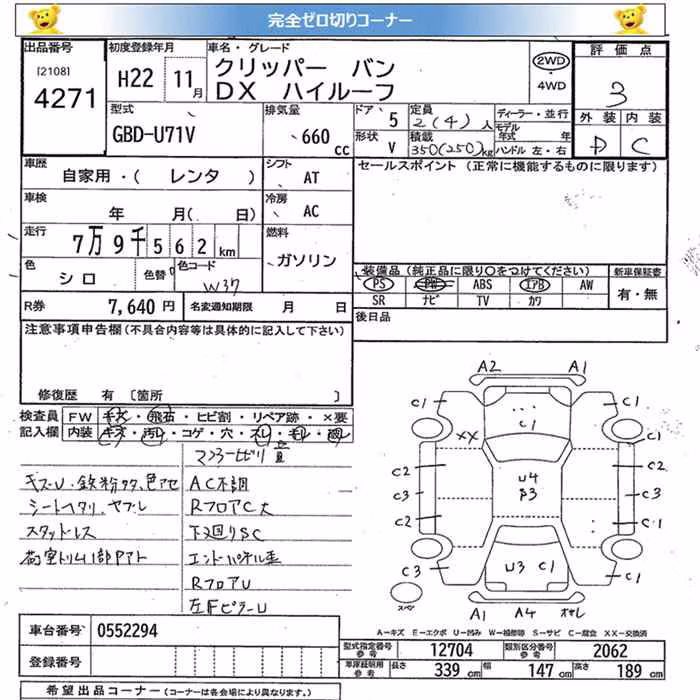 完全ゼロ切りコーナー
出品番号
[2108]
4271
初度登録年月
H22 11月
車名・グレード
クリッパー バン
DX ハイルーフ
2WD
・
4WD
評価点
3
外装 内装
D C
型式
GBD-U71V
排気量
660
cc
ドア
5
形状
V
定員
2(4)人
積載
350(250)kg
ディーラー・並行
モデル
年式 年
ハンドル 左・右
車歴
自家用・( レンタ )
シフト
AT
車検
年 月( 日)
冷房
AC
走行
7万9千562km
燃料
ガソリン
色
シロ
色替
色コード
W37
R券
7,640 円
名変通知期限 月 日
セールスポイント (正常に機能するものに限ります)
装備品(純正品に限り○をつけてください)
PS PW ABS エアB AW
SR ナビ TV カワ
新車保証書
有・無
後日品
注意事項申告欄(不具合内容等は具体的に記入して下さい)
修復歴 有 〔箇所 〕
検査員
記入欄
FW キズ・飛石・ヒビ割・リペア跡・×要
内装 キズ・汚レ・コゲ・穴・スレ・モレ・
キズU・鉄粉
シートヘタリ、ヤブレ
スタッドレス
AC不調
RフロアC大
下廻りSC
エンドパネル歪
RフロアU
左FピラーU
A2 A1
C1 C1
C1
XX
C2 C2
U4
C3 C3
C2 C1
U3 C1
C3 C3
スペア
A1 A4
A−キズ E−エクボ U−凹み W−補修跡 S−サビ C−腐食 XX−交換済
車台番号 0552294
登録番号
型式指定番号
参考
12704
類別区分番号
参考
2062
車庫証明用
参考
長さ 339 cm 幅 147 cm 高さ 189 cm
希望出品コーナー(コーナーは各会場により異なります。)